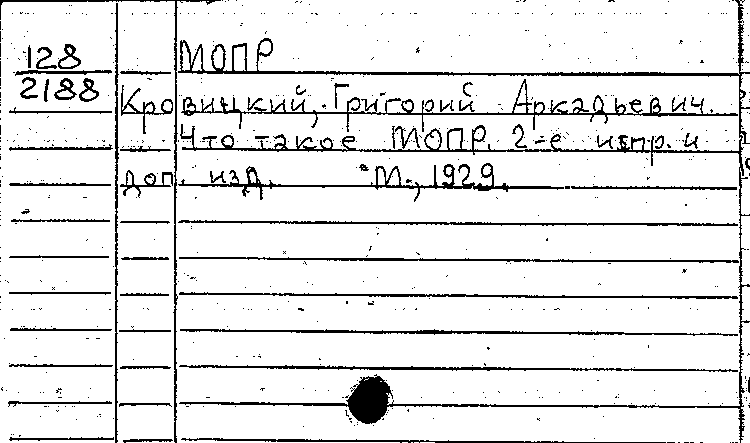 128 МОПР
2188
Кровицкий, Григорий Аркадьевич.
Что такое МОПР. 2-е испр. и
доп. изд. М., 1929.